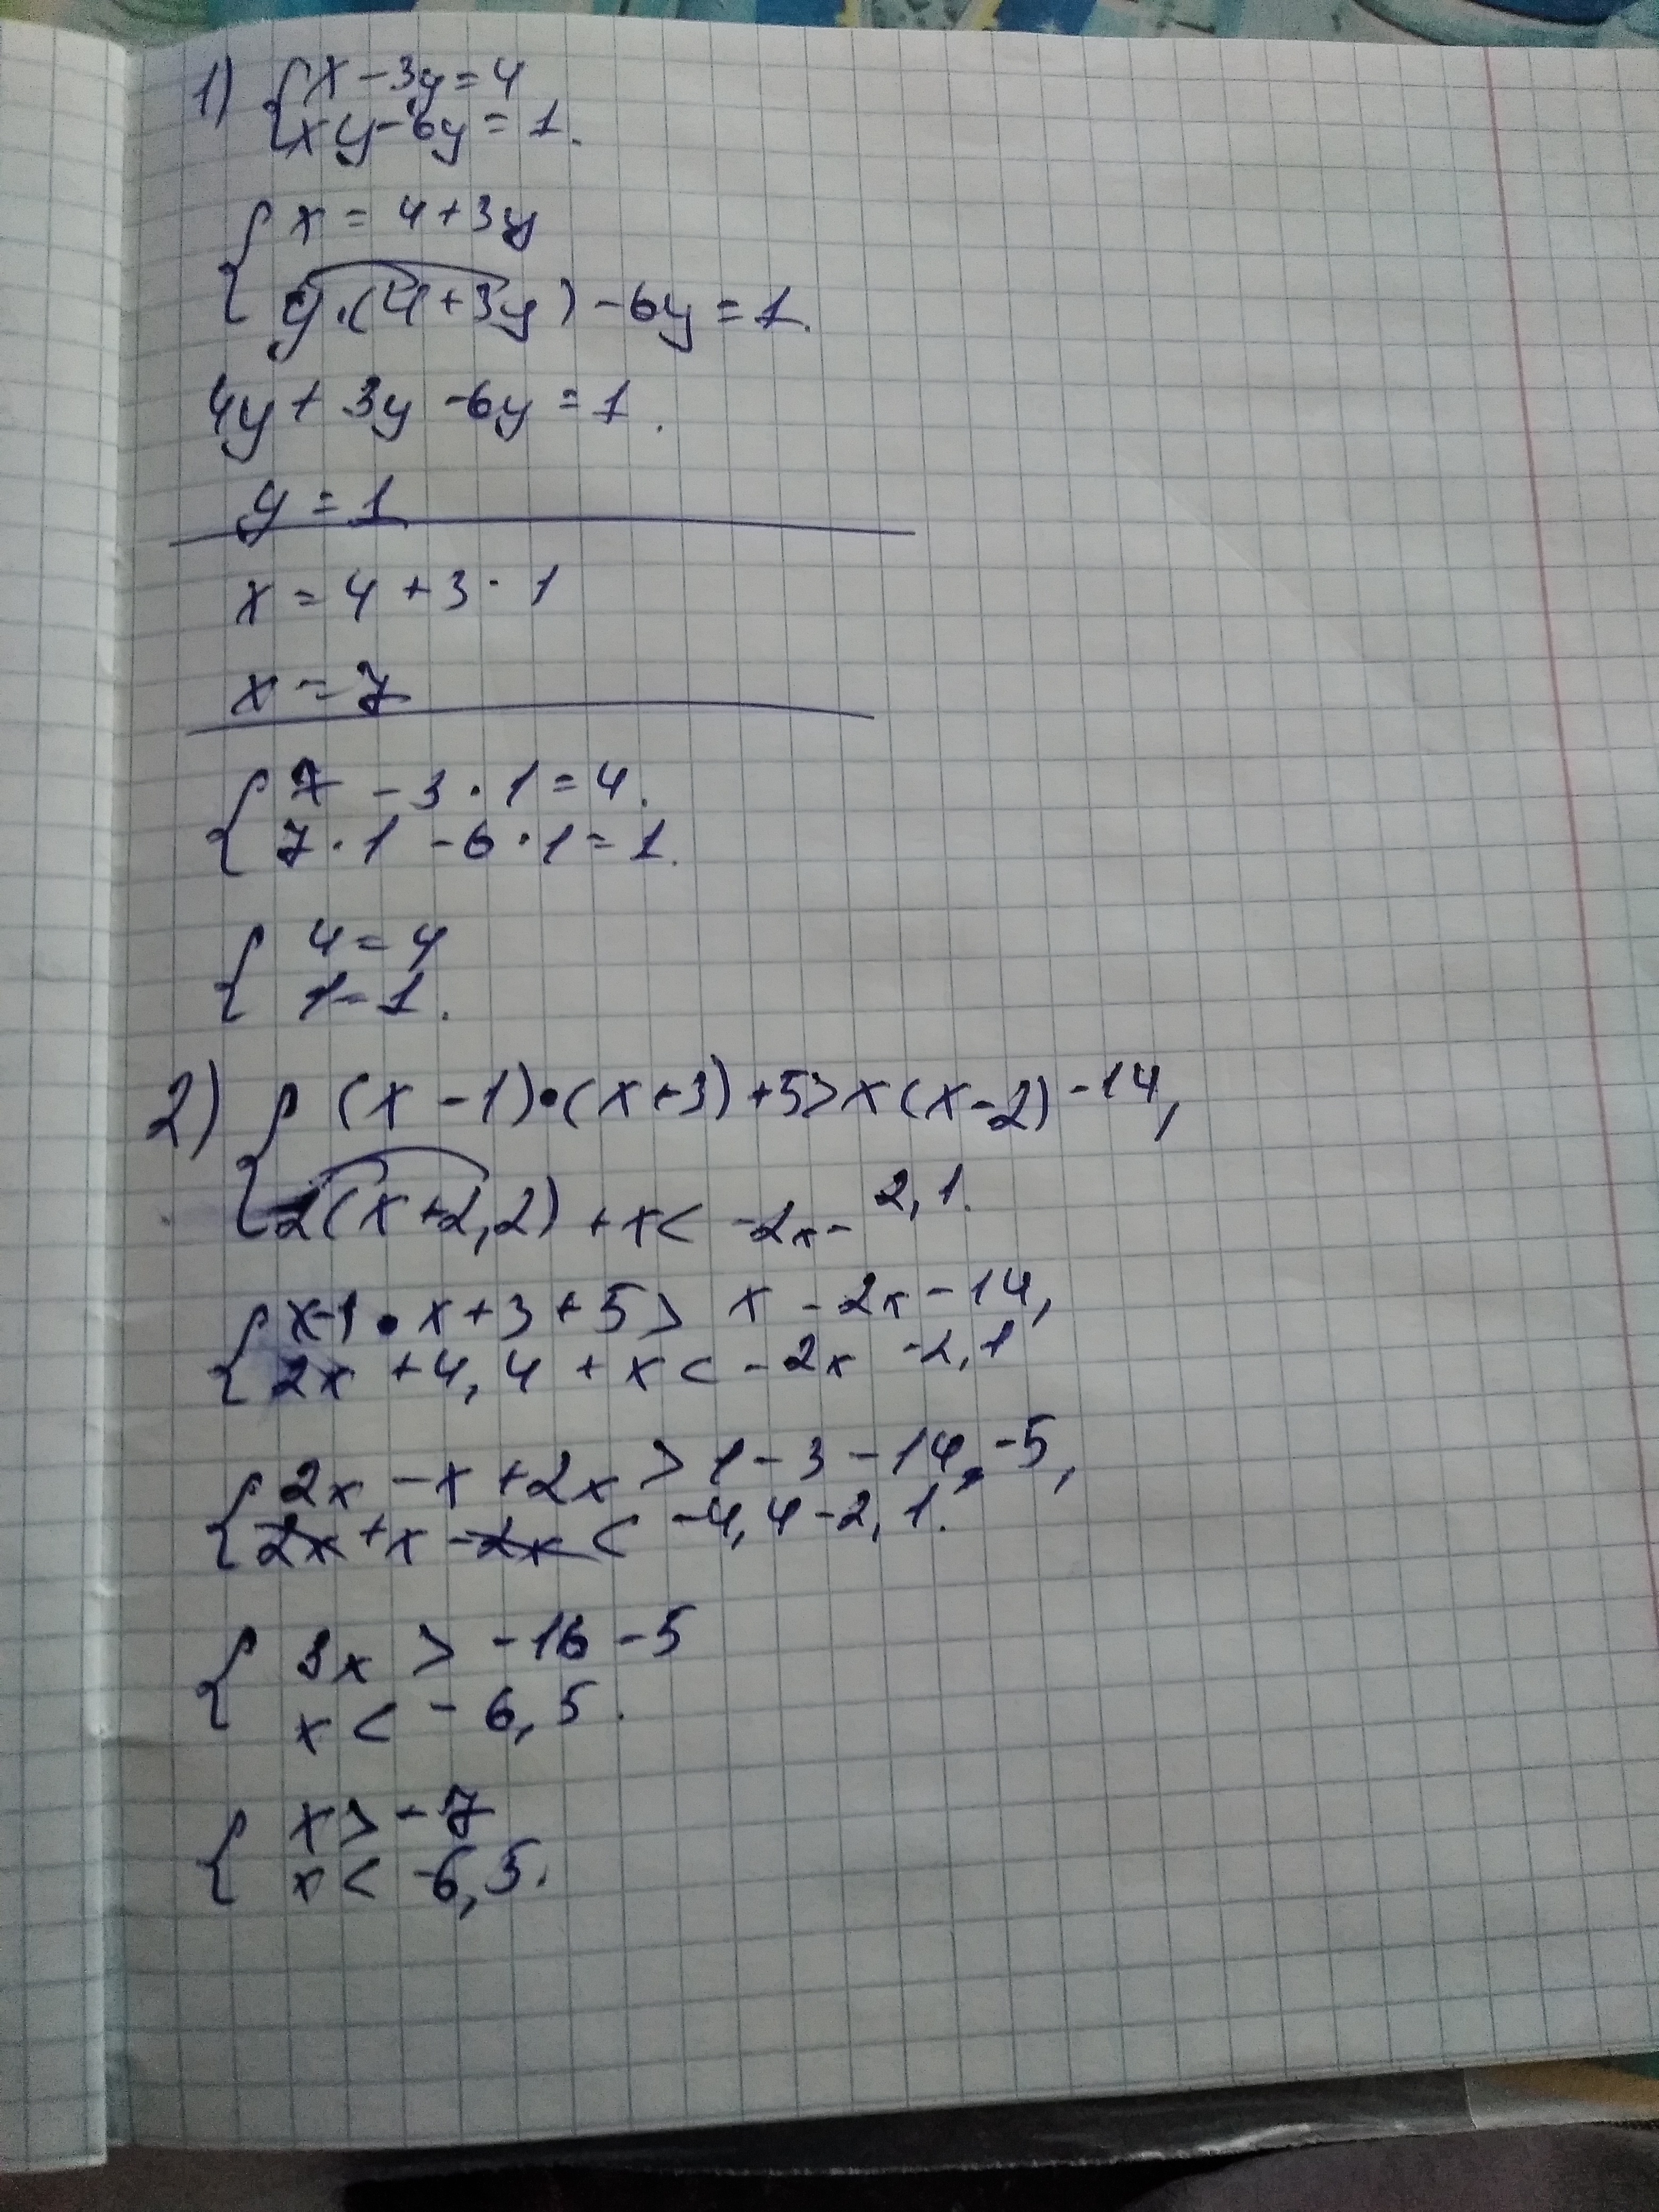 1) { x - 3y = 4
xy - 6y = 1.
{ x = 4 + 3y
y·(4 + 3y) - 6y = 1.
4y + 3y - 6y = 1.
y = 1
x = 4 + 3 · 1
x = 7
{ 7 - 3 · 1 = 4.
7 · 1 - 6 · 1 = 1.
{ 4 = 4
1 = 1.
2) { (x - 1)·(x + 3) + 5 > x(x - 2) - 14,
2(x + 2,2) + x < -2x - 2,1.
{ x - 1 · x + 3 + 5 > x - 2x - 14,
2x + 4,4 + x < - 2x - 2,1
{ 2x - x + 2x > 1 - 3 - 14 - 5,
2x + x - 2x < -4,4 - 2,1.
{ 3x > -16 - 5
x < - 6,5.
{ x > - 7
x < -6,5.